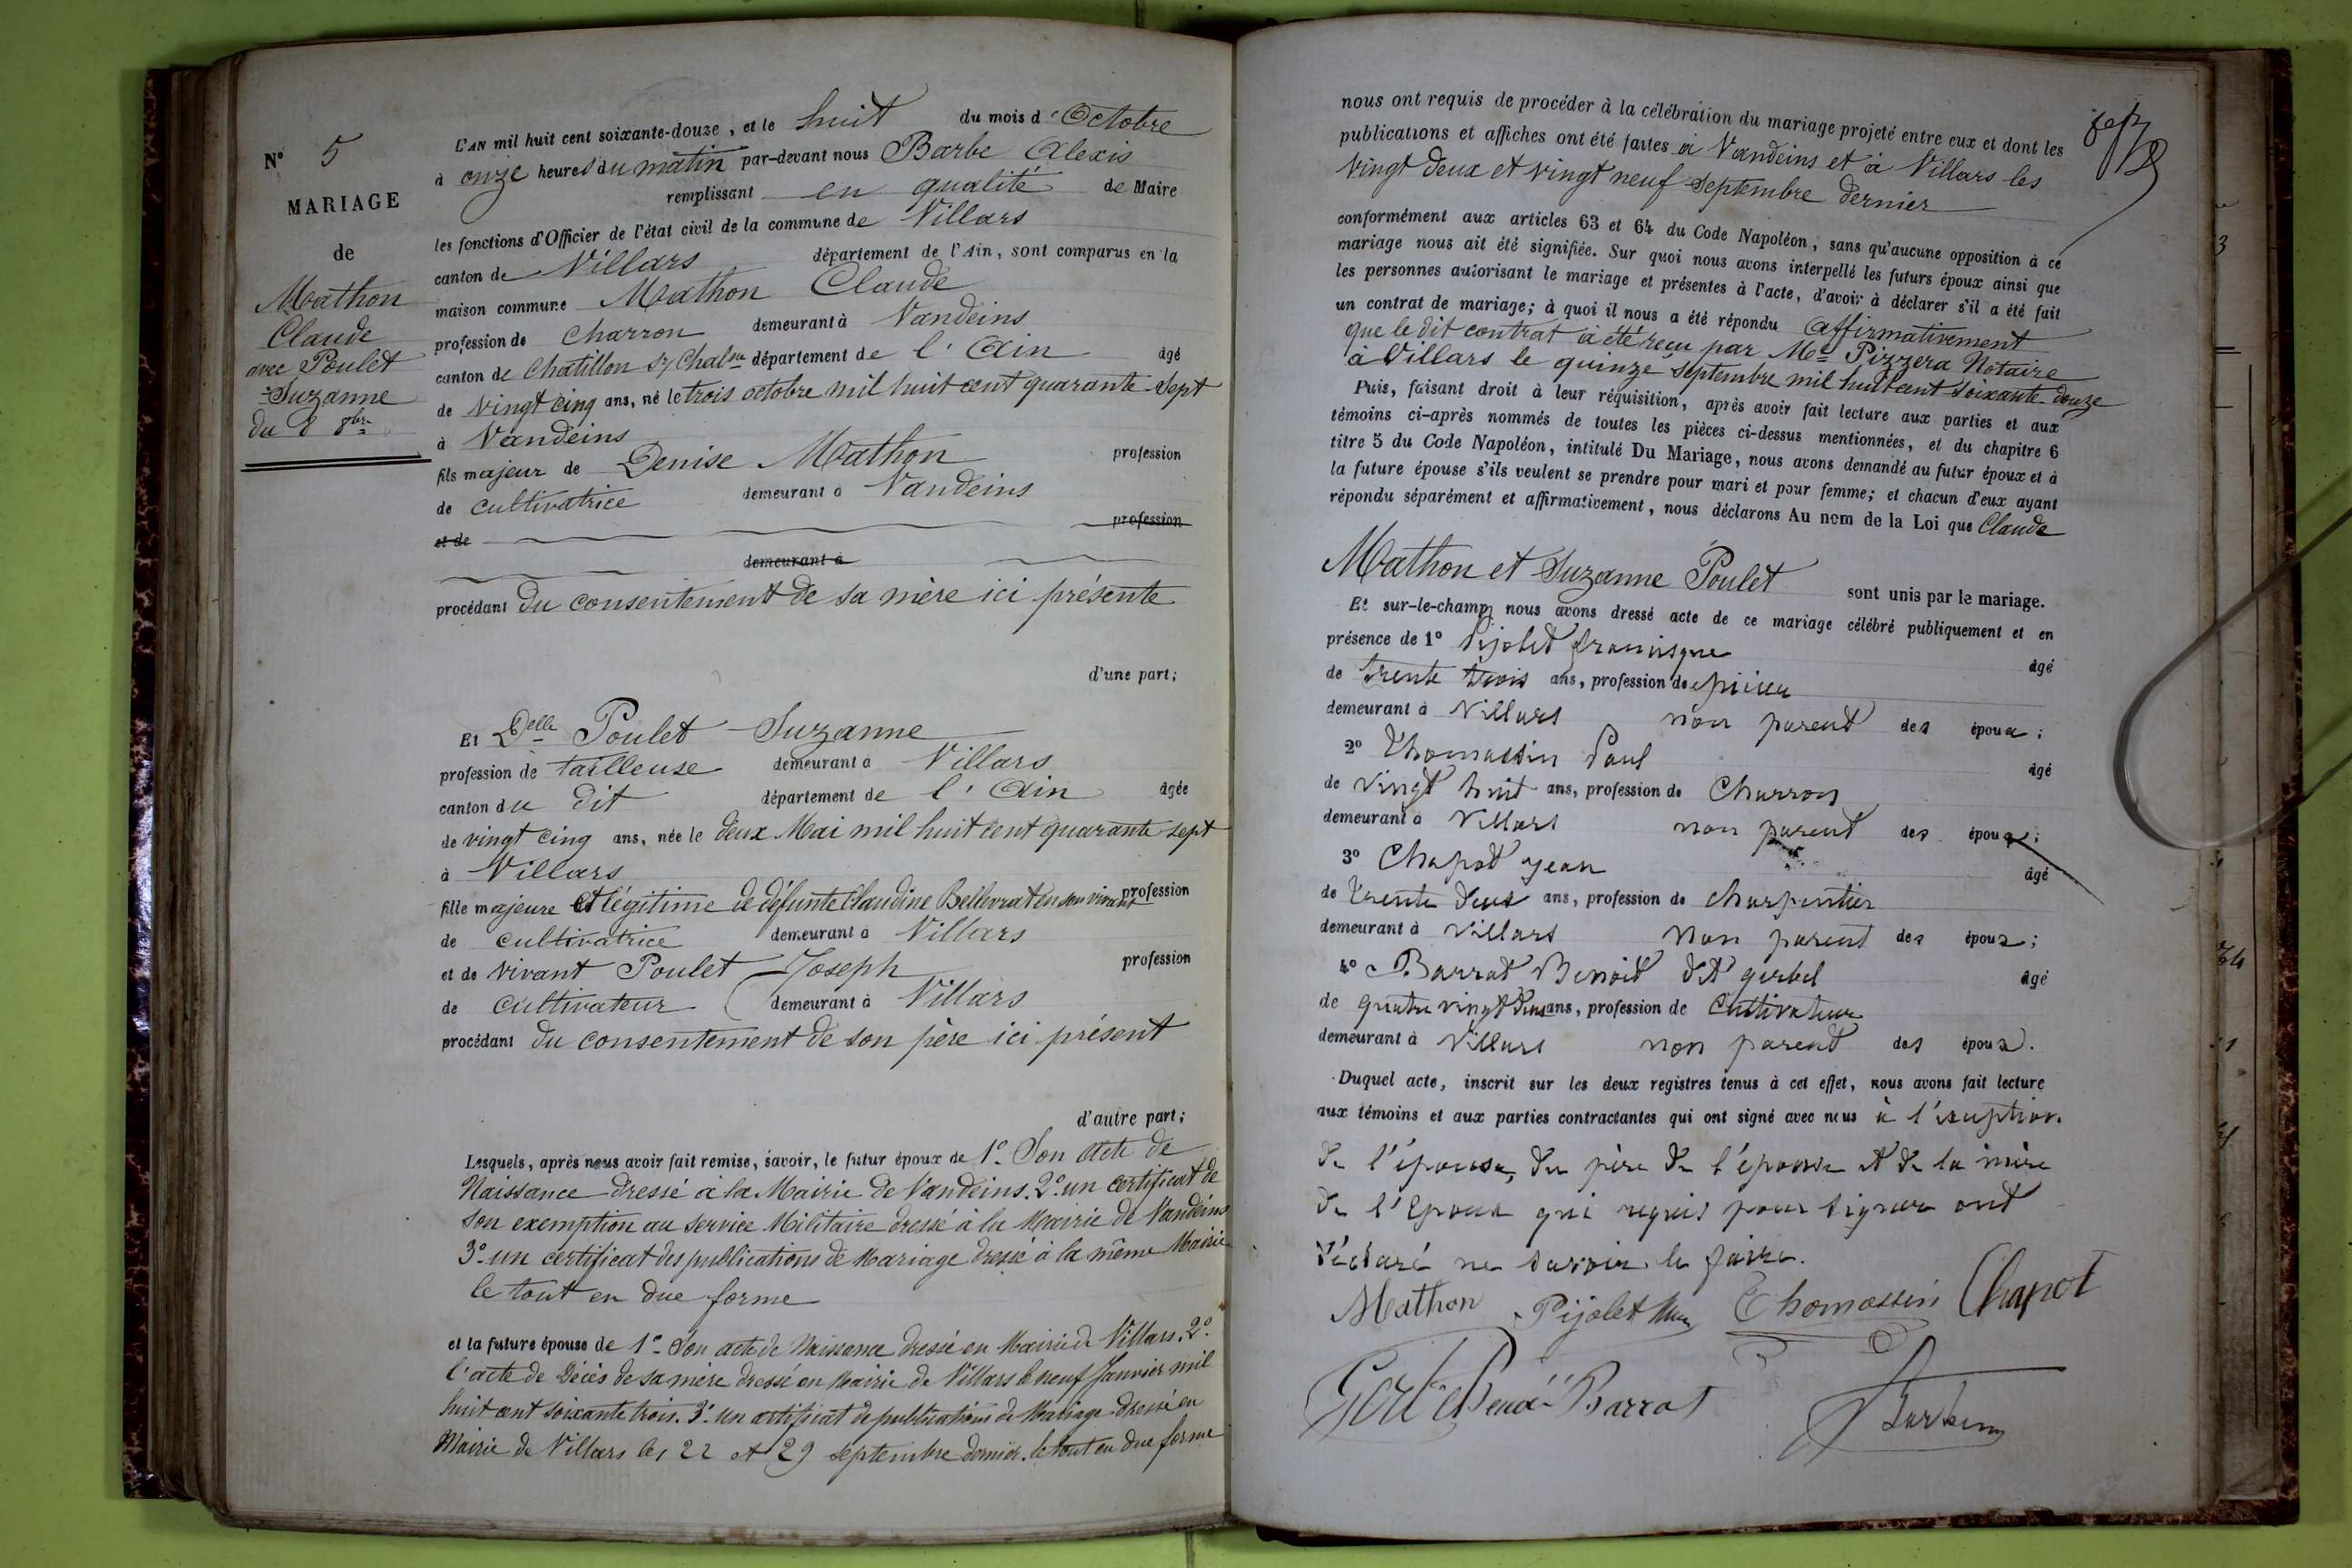 N° 5
MARIAGE
de
Mathon
Claude
avec Poulet
Suzanne
du 8 8bre
L'AN mil huit cent soixante-douze, et le huit du mois d'Octobre
à onze heures du matin par-devant nous Barbe Alexis
remplissant en qualité de Maire
les fonctions d'Officier de l'état civil de la commune de Villars
canton de Villars département de l'Ain, sont comparus en la
maison commune Mathon Claude
profession de Charron demeurant à Vandeins
canton de Chatillon s/ Chalne département de l'Ain âgé
de vingt cinq ans, né le trois octobre mil huit cent quarante-sept
à Vandeins
fils majeur de Denise Mathon profession
de cultivatrice demeurant à Vandeins
et de profession
demeurant à
procédant du consentement de sa mère ici présente
d'une part;
Et Delle Poulet Suzanne
profession de tailleuse demeurant à Villars
canton du dit département de l'Ain âgée
de vingt cinq ans, née le deux Mai mil huit cent quarante sept
à Villars
fille majeure et légitime de défunte Claudine Bellevrat en son vivant profession
de cultivatrice demeurant à Villars
et de vivant Poulet Joseph profession
de cultivateur demeurant à Villars
procédant du consentement de son père ici présent
d'autre part;
Lesquels, après nous avoir fait remise, savoir, le futur époux de 1° Son Acte de
Naissance dressé à la Mairie de Vandeins. 2° un certificat de
son exemption au service Militaire dressé à la Mairie de Vandeins
3° un certificat des publications de Mariage dressé à la même Mairie
le tout en due forme
et la future épouse de 1° Son acte de Naissance dressé en Mairie de Villars. 2°
l'acte de Décès de sa mère dressé en Mairie de Villars le neuf Janvier mil
huit cent soixante trois. 3° Un certificat de publications de Mariage dressé en
Mairie de Villars les 22 et 29 septembre dernier. le tout en due forme
nous ont requis de procéder à la célébration du mariage projeté entre eux et dont les
publications et affiches ont été faites à Vandeins et à Villars les
vingt deux et vingt neuf Septembre dernier
conformément aux articles 63 et 64 du Code Napoléon, sans qu'aucune opposition à ce
mariage nous ait été signifiée. Sur quoi nous avons interpellé les futurs époux ainsi que
les personnes autorisant le mariage et présentes à l'acte, d'avoir à déclarer s'il a été fait
un contrat de mariage; à quoi il nous a été répondu affirmativement
que le dit contrat a été reçu par Me Pizzera Notaire
à Villars le quinze septembre mil huit cent soixante-douze
Puis, faisant droit à leur réquisition, après avoir fait lecture aux parties et aux
témoins ci-après nommés de toutes les pièces ci-dessus mentionnées, et du chapitre 6
titre 5 du Code Napoléon, intitulé Du Mariage, nous avons demandé au futur époux et à
la future épouse s'ils veulent se prendre pour mari et pour femme; et chacun d'eux ayant
répondu séparément et affirmativement, nous déclarons Au nom de la Loi que Claude
Mathon et Suzanne Poulet sont unis par le mariage.
Et sur-le-champ nous avons dressé acte de ce mariage célébré publiquement et en
présence de 1° Pijolet francisque âgé
de trente trois ans, profession de épicier
demeurant à Villars non parent des époux;
2° Thomassin Paul âgé
de vingt huit ans, profession de Charron
demeurant à Villars non parent des époux;
3° Chapot Jean âgé
de trente deux ans, profession de charpentier
demeurant à Villars non parent des époux;
4° Barrat Benoit dit gerbel âgé
de quatre vingt deux ans, profession de cultivateur
demeurant à Villars non parent des époux.
Duquel acte, inscrit sur les deux registres tenus à cet effet, nous avons fait lecture
aux témoins et aux parties contractantes qui ont signé avec nous à l'exception
de l'épouse, du père de l'épouse et de la mère
de l'Epoux qui requis pour signer ont
déclaré ne savoir le faire.
Mathon Pijolet Thomassin Chapot
Barrat